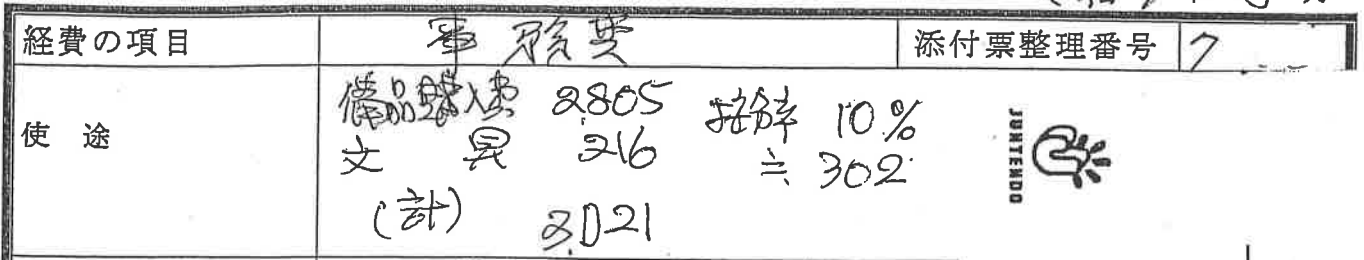 経費の項目 事務費 添付票整理番号 7
使 途
備品購入費 2805 按分率 10%
文 具 216 ≒ 302
(計) 3,021
JUNTENDO